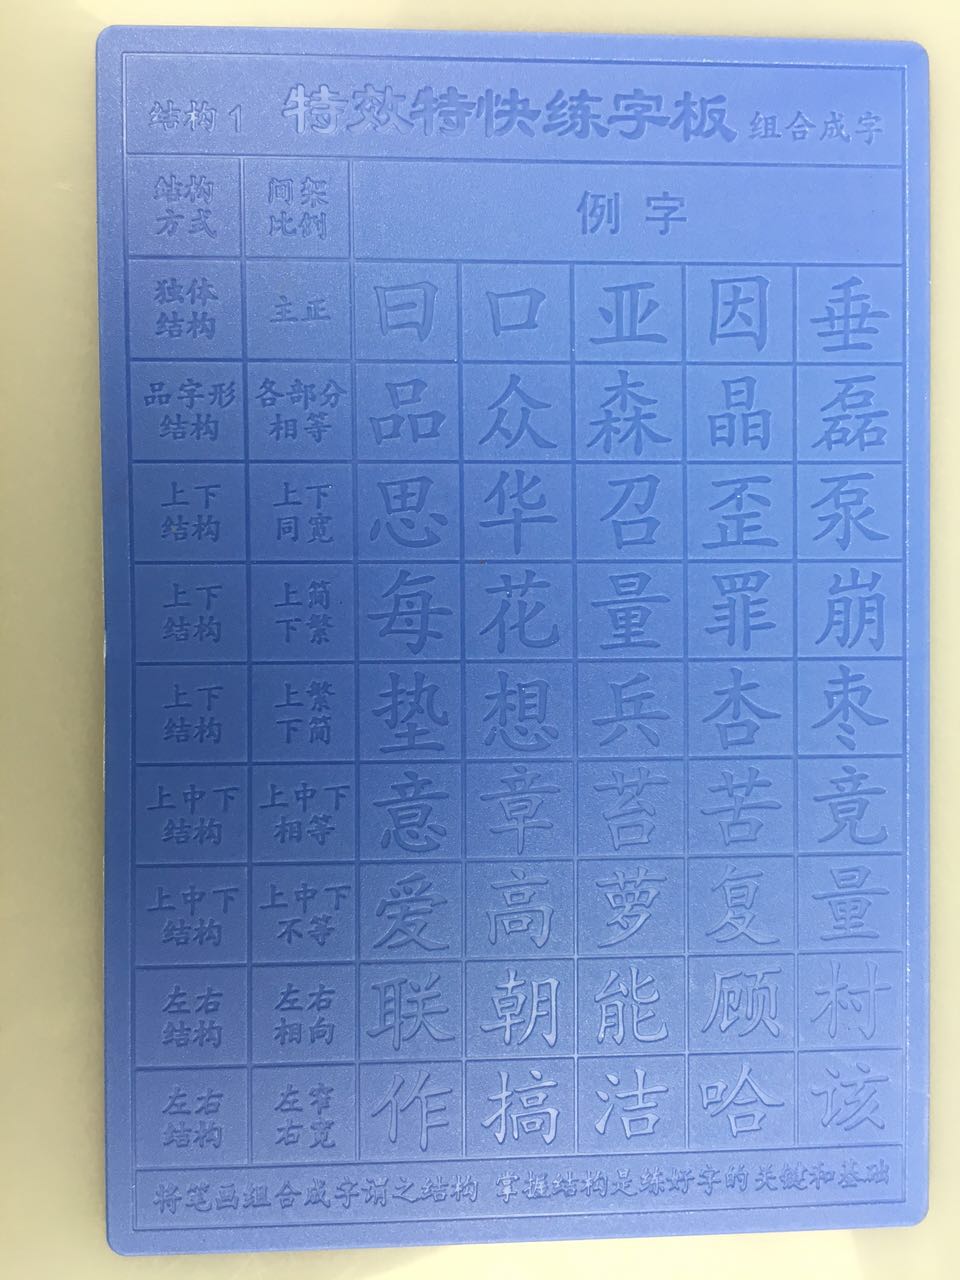 结构1 特效特快练字板 组合成字
结构方式 间架比例 例字
独体结构 主正 曰 口 亚 因 垂
品字形结构 各部分相等 品 众 森 晶 磊
上下结构 上下同宽 思 华 召 歪 泵
上下结构 上简下繁 每 花 量 罪 崩
上下结构 上繁下简 垫 想 兵 杏 枣
上中下结构 上中下相等 意 章 苔 苦 竟
上中下结构 上中下不等 爱 高 萝 复 量
左右结构 左右相向 联 朝 能 顾 村
左右结构 左窄右宽 作 搞 洁 哈 该
将笔画组合成字谓之结构 掌握结构是练好字的关键和基础